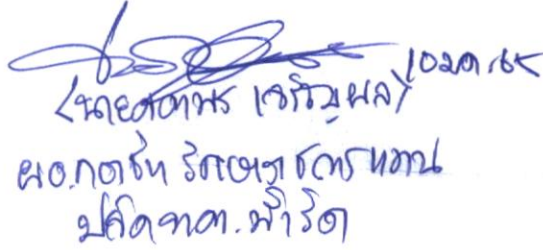 10 มค. 65
(นายสถาพร เจริญผล)
ผอ.กองช่าง รักษาราชการแทน
ปลัด ทต.